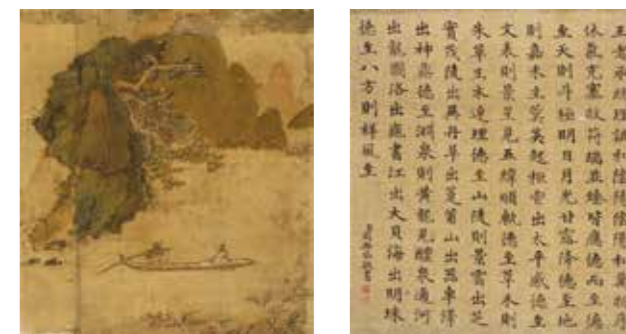 王者承統理調和陰陽陰陽和萬物序
休氣充塞故符瑞並臻皆應德而至德
至天則斗極明日月光甘露降德至地
則嘉禾生蓂莢起秬鬯出太平感德至
文表則景星見五緯順軌德至草木則
朱草生木連理德至山陵則景雲出芝
實茂陵出黑丹阜出萐莆山出器車澤
出神鼎德至淵泉則黃龍見醴泉通河
出龍圖洛出龜書江出大貝海出明珠
德至八方則祥風至